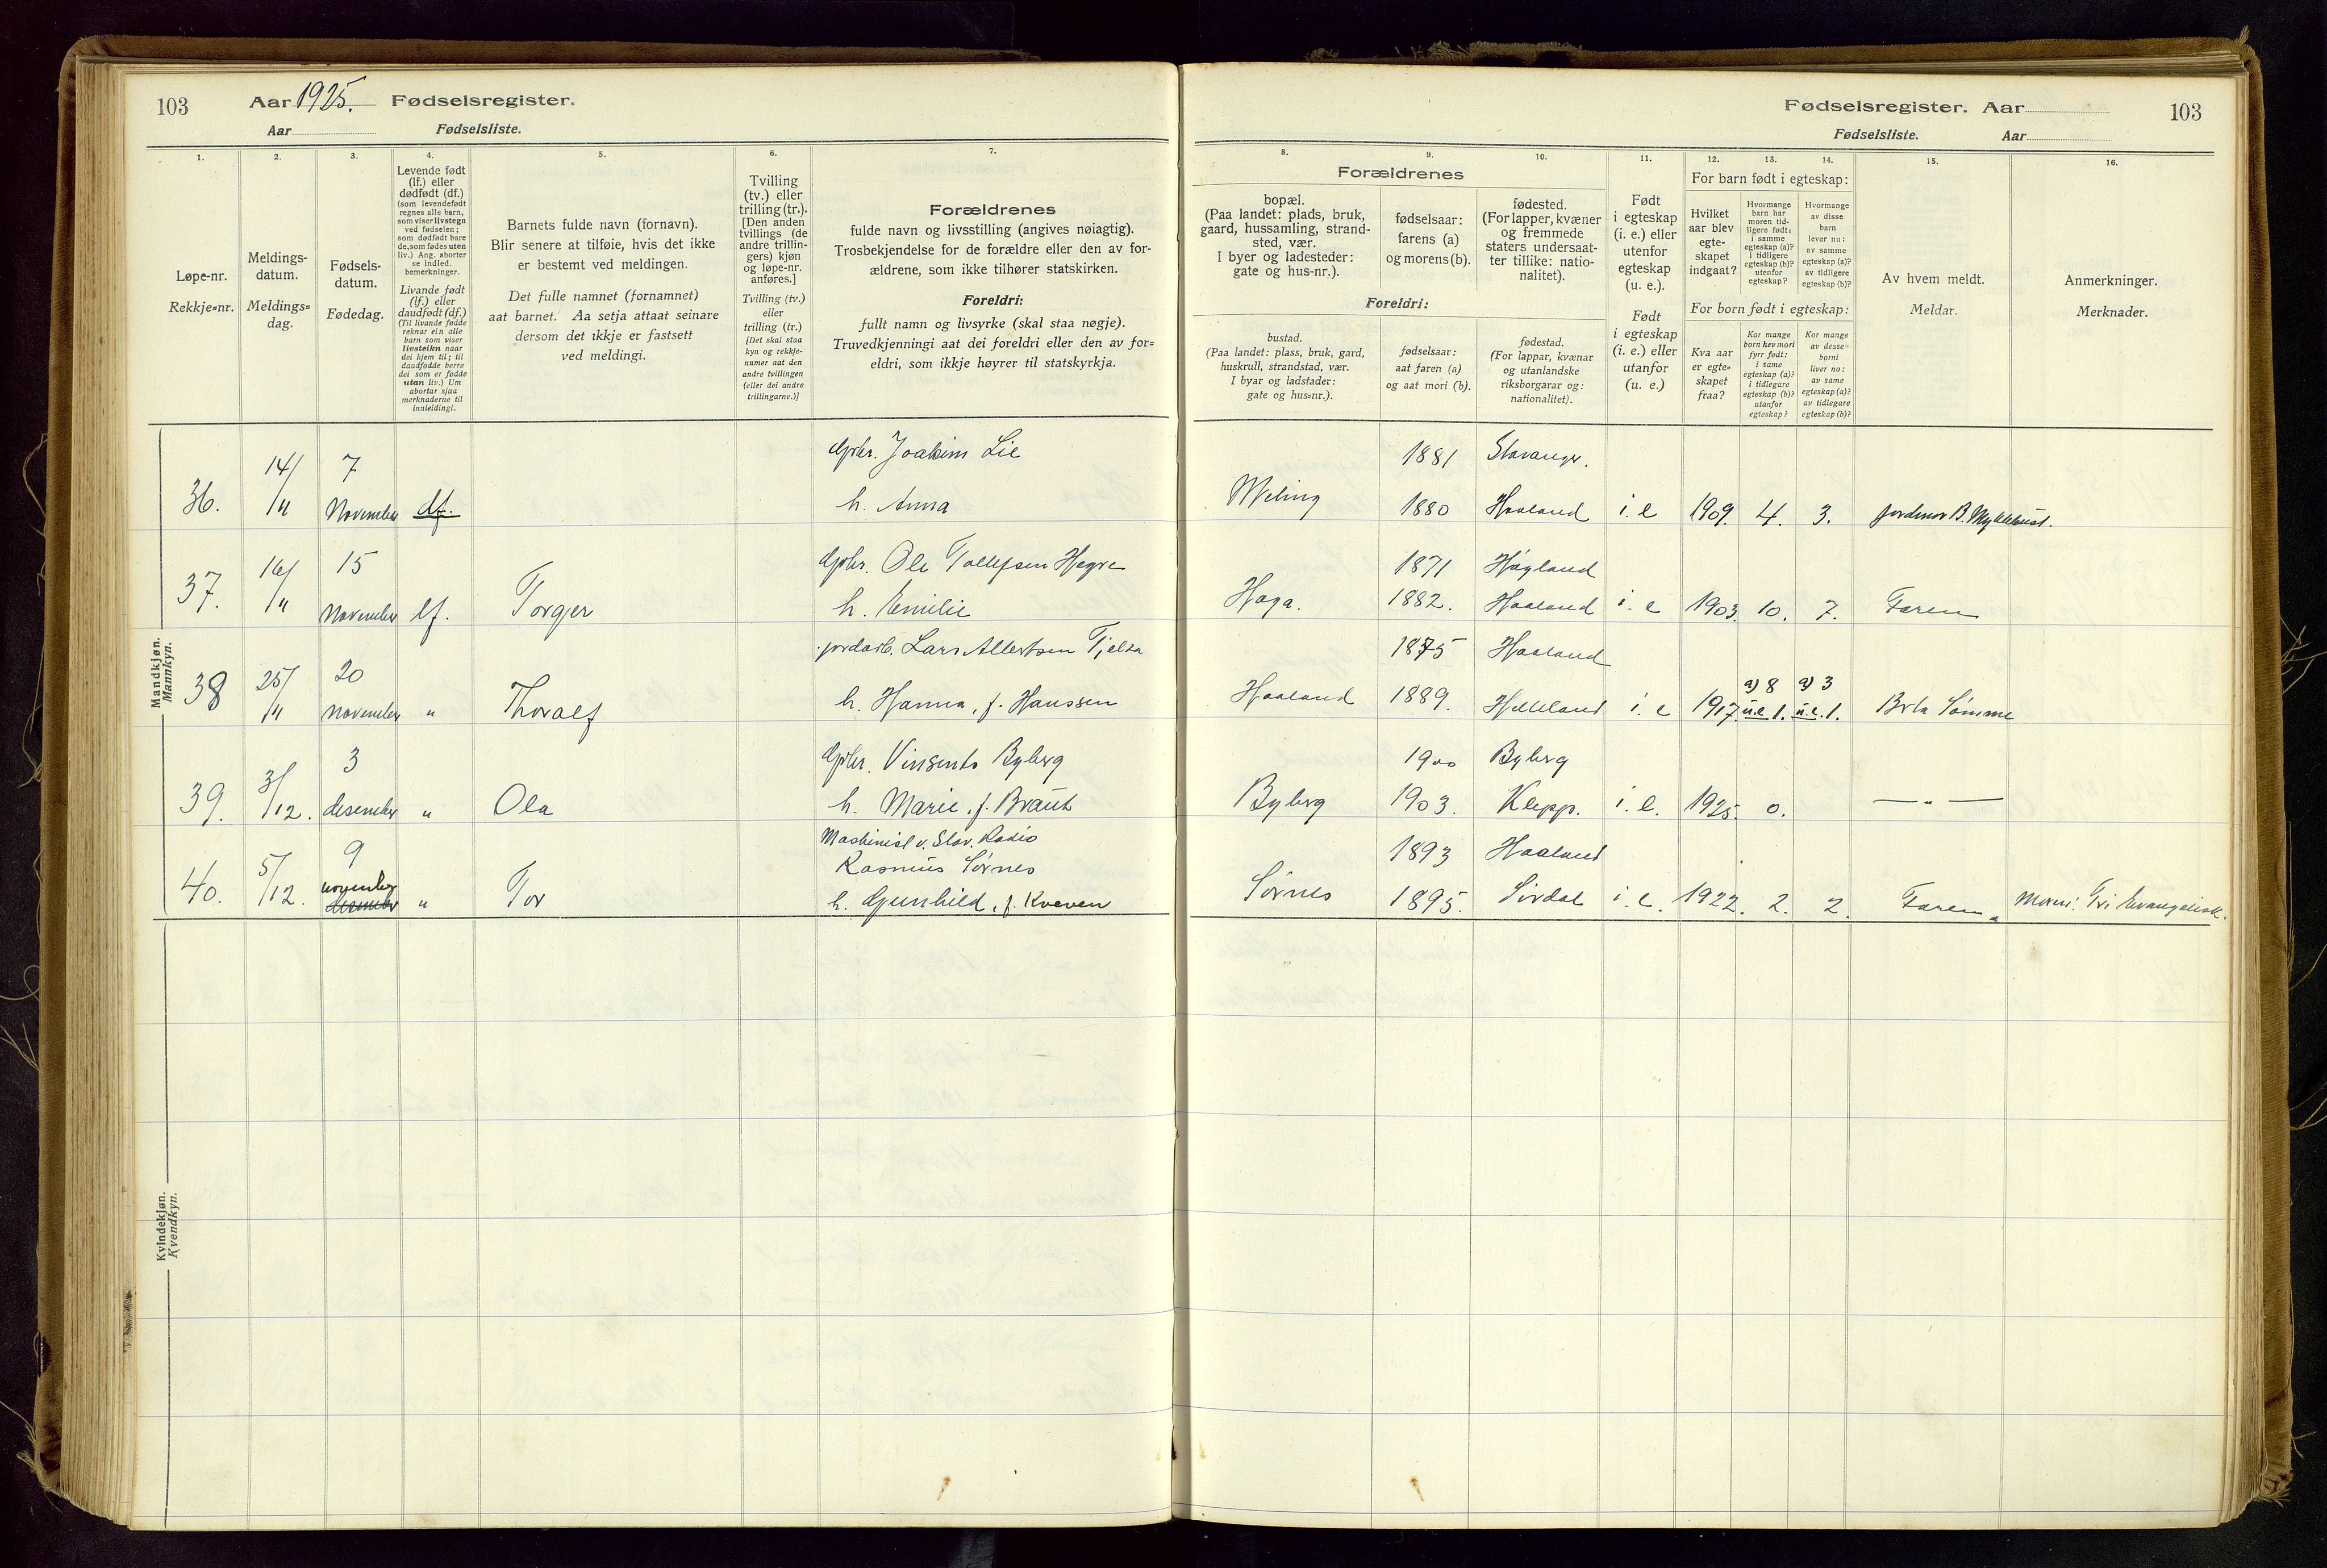 103 Aar 1925. Fødselsregister.
Aar Fødselsliste.
Fødselsregister. Aar 103
Fødselsliste. Aar
1.
Løpe-nr.
Rekkje=nr.
2.
Meldings-
datum.
Meldings=
dag.
3.
Fødsels-
datum.
Fødedag.
4.
Levende født
(lf.) eller
dødfødt (df.)
(som levendefødt
regnes alle barn,
som viser livstegn
ved fødselen;
som dødfødt bare
de, som fødes uten
liv.) Ang. aborter
se indled.
bemerkninger.
Livande født
(lf.) eller
daudfødt (df.)
(Til livande fødde
reknar ein alle
barn som viser
livsteikn naar
dei kjem til; til
daudfødde berre
dei som er fødde
utan liv.) Um
abortar sjaa
merknaderne til
innleidingi.
5.
Barnets fulde navn (fornavn).
Blir senere at tilføie, hvis det ikke
er bestemt ved meldingen.
Det fulle namnet (fornamnet)
aat barnet. Aa setja attaat seinare
dersom det ikkje er fastsett
ved meldingi.
6.
Tvilling
(tv.) eller
trilling (tr.).
[Den anden
tvillings (de
andre trillin-
gers) kjøn
og løpe-nr.
anføres.]
Tvilling (tv.)
eller
trilling (tr.)
[Det skal staa
kyn og rekkje-
numer aat den
andre tvillingen
(eller dei andre
trillingarne.)]
7.
Forældrenes
fulde navn og livsstilling (angives nøiagtig).
Trosbekjendelse for de forældre eller den av for-
ældrene, som ikke tilhører statskirken.
Foreldri:
fullt namn og livsyrke (skal staa nøgje).
Truvedkjenningi aat dei foreldri eller den av for=
eldri, som ikkje høyrer til statskyrkja.
Forældrenes
8.
bopæl.
(Paa landet: plads, bruk,
gaard, hussamling, strand-
sted, vær.
I byer og ladesteder:
gate og hus-nr.).
9.
fødselsaar:
farens (a)
og morens (b).
10.
fødested.
(For lapper, kvæner
og fremmede
staters undersaat-
ter tillike: natio-
nalitet).
Foreldri:
bustad.
(Paa landet: plass, bruk, gard,
huskrull, strandstad, vær.
I byar og ladstader:
gate og hus=nr.).
fødselsaar:
aat faren (a)
og aat mori (b).
fødestad.
(For lappar, kvænar
og utanlandske
riksborgarar og:
nationalitet).
11.
Født
i egteskap
(i. e.) eller
utenfor
egteskap
(u. e.).
Født
i egteskap
(i. e.) eller
utanfor
(u. e.)
12. 13. 14.
For barn født i egteskap:
Hvilket
aar blev
egte-
skapet
indgaat?
Hvormange
barn har
moren tid-
ligere født:
i samme
egteskap (a)?
i tidligere
egteskap (b)?
utenfor
egteskap?
Hvormange
av disse
barn
lever nu:
av samme
egteskap (a)?
av tidligere
egteskap (b)?
For born født i egteskap:
Kva aar
er egte=
skapet
fraa?
Kor mange
born hev mori
fyrr født:
i same
egteskap (a)?
i tidlegare
egteskap (b)?
utanfor
egteskap?
Kor mange
av desse=
borni
liver no:
av same
egteskap (a)?
av tidlegare
egteskap (b)?
15.
Av hvem meldt.
Meldar.
16.
Anmerkninger.
Merknader.
Mandkjøn.
Mannkyn.
36. 14/11 7 November df. gbr. Joakim Lie 1881 Stavanger.
h. Anna Meling 1880 Haaland i. e 1909. 4. 3. jordmor B. Myklebust.
37. 16/11 15 November lf. Torger gbr. Ole Tollefsen Hegre 1871 Høyland
h. Emilie Haga. 1882. Haaland i. e 1903. 10. 7. Faren
38 25/11 20 November " Thoralf jordarb. Lars Allertsen Tjelta 1875 Haaland
h. Hanna, f. Hanssen Haaland 1889. Helleland i. e 1917 a) 8 u.e 1. a) 3 u.e. 1. Brta Sømme
39. 3/12. 3 desember " Ola gbr. Vinsents Byberg 1900 Byberg
h. Marie, f. Braut Byberg 1903. Klepp. i. e. 1925. 0. — " —
40. 5/12. 9 november desember " Tor Maskinist v. Stav. Radio
Rasmus Sørnes 1893 Haaland
h. Gunhild, f. Kveven Sørnes 1895. Sirdal i. e. 1922. 2. 2. Faren. Moren: Fri Evangelisk.
Kvindekjøn.
Kvendkyn.